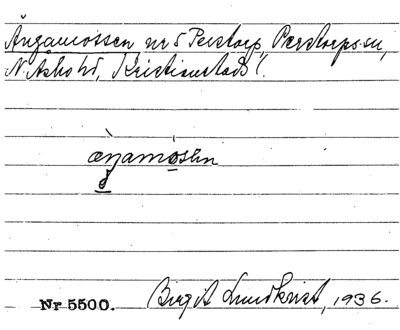 Ängamossen nr 5 Perstorp, Perstorps sn,
N. Åsbo hd, Kristianstads l.
æŋamosen
Nr 5500. Birgit Lundkvist, 1936.